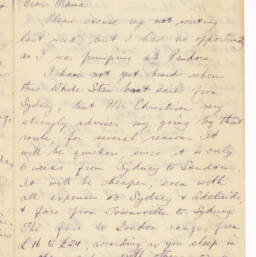 Dear Mama
Please excuse my not writing
last week but I had no opportunity
as I was pumping at Pandora
I have not yet heard when
the White Star boat sails from
Sydney, but Mr Christison very
strongly advises my going by that
route, for several reasons. It
will be quicker, since it is only
6 weeks from Sydney to London.
It will be cheaper, even with
all expenses at Sydney & Adelaide,
& fare from Townsville to Sydney.
The fare to London ranges from
£16 to £24 according as you sleep in